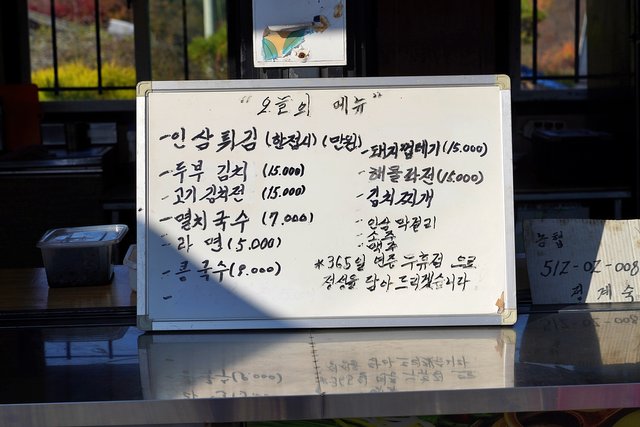 "오늘의 메뉴"
-인삼튀김 (한접시) (만원)
-두부 김치 (15.000)
-고기 김치전 (15.000)
-멸치국수 (7.000)
-라면 (5.000)
-콩국수 (8.000)
-
-돼지껍데기 (15.000)
-해물파전 (15.000)
-김치찌개
-인삼 막걸리
-소주
-맥주
*365일 연중 무휴점 으로
정성을 담아 드리겠습니다
농협
512-02-008
정계숙